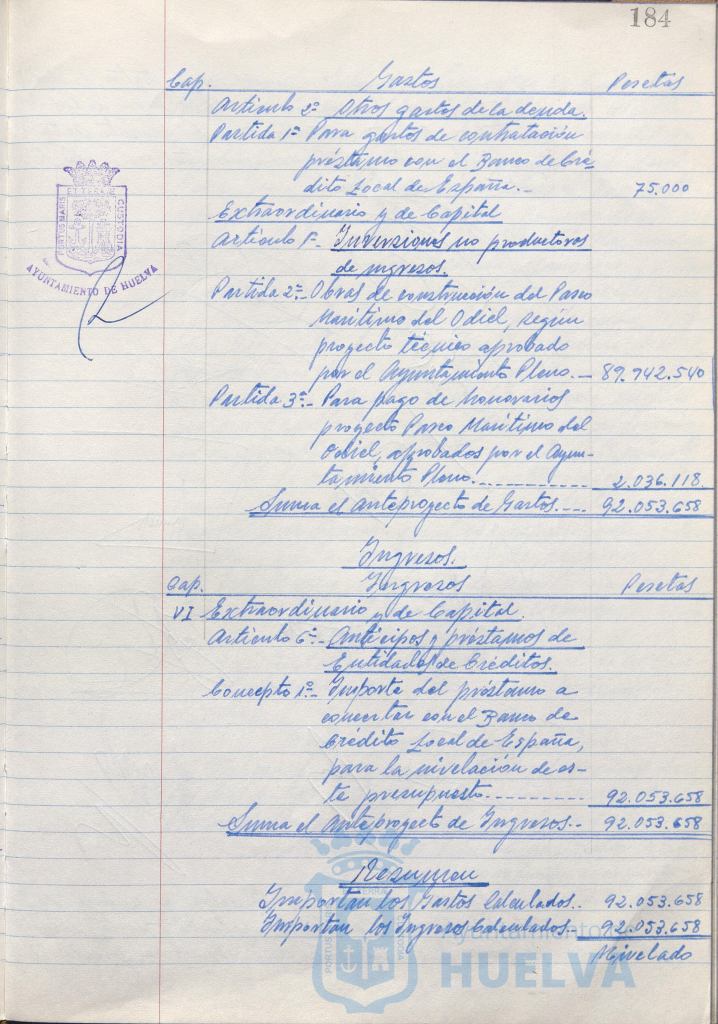 184
Cap. Gastos Pesetas
Artículo 2º Otros gastos de la deuda.
Partida 1ª Para gastos de contratación
préstamo con el Banco de Cré-
dito Local de España.- 75.000
Extraordinario y de Capital
Artículo 1º- Inversiones no productoras
de ingresos.
Partida 2ª- Obras de construcción del Paseo
Marítimo del Odiel, según
proyecto técnico aprobado
por el Ayuntamiento Pleno.- 89.942.540
Partida 3ª- Para pago de honorarios
proyecto Paseo Marítimo del
Odiel, aprobados por el Ayun-
tamiento Pleno.------------ 2.036.118.
Suma el anteproyecto de Gastos.--- 92.053.658
Ingresos.
Cap. Ingresos Pesetas
VI Extraordinario y de Capital.
Artículo 6º- Anticipos y préstamos de
Entidades de Créditos.
Concepto 1º- Importe del préstamo a
concertar con el Banco de
Crédito Local de España,
para la nivelación de es-
te presupuesto.----------- 92.053.658
Suma el anteproyecto de Ingresos.-- 92.053.658
Resumen
Importan los Gastos Calculados.. 92.053.658
Importan los Ingresos Calculados.- 92.053.658
Nivelado
PORTUS MARIS ET TERRAE CUSTODIA
AYUNTAMIENTO DE HUELVA
Ayuntamiento de
HUELVA